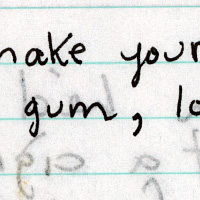 make your
gum, lo